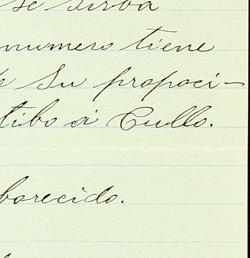 se sirva
numero tiene
su propoci-
tibo á Cullo.
borecido.